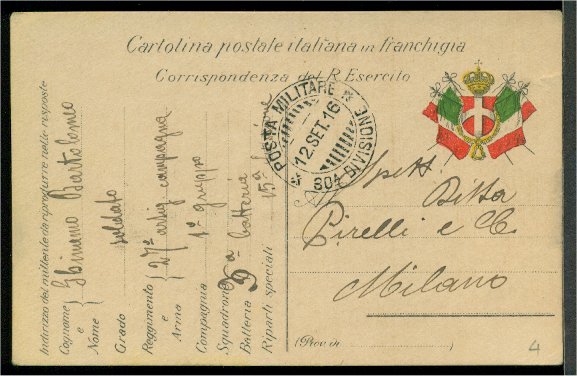 Cartolina postale italiana in franchigia
Corrispondenza del R. Esercito
POSTA MILITARE
12.SET.16
80ª DIVISIONE
Spett. Ditta
Pirelli e C.
Milano
(Prov. di
4
Indirizzo del mittente da riprodurre nelle risposte
Cognome e Nome Bartolomeo
Grado soldato
Reggimento e Arma 27º artig campagna
Compagnia 1º gruppo
Squadrone
Batteria batteria
Riparti speciali 15ª